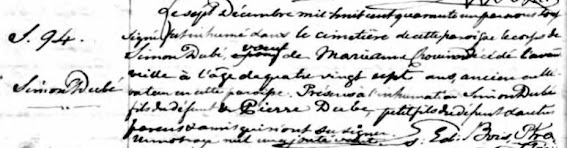 Le sept Décembre mil huit cent quarante un par nous Soussi
S. 94. signé fut inhumé dans le cimetière de cette paroisse le corps de
Simon Dubé veuf de Marianne décédé l'avant
Simon Dubé veille à l'âge de quatre vingt sept ans, ancien culti
vateur en cette paroisse. Présens à l'inhumation Simon Dubé
fils du défunt & Pierre Dubé, petit fils du défunt & autres
parens & amis qui n'ont su signer.
Un mot nul Ed. Bois, Ptre